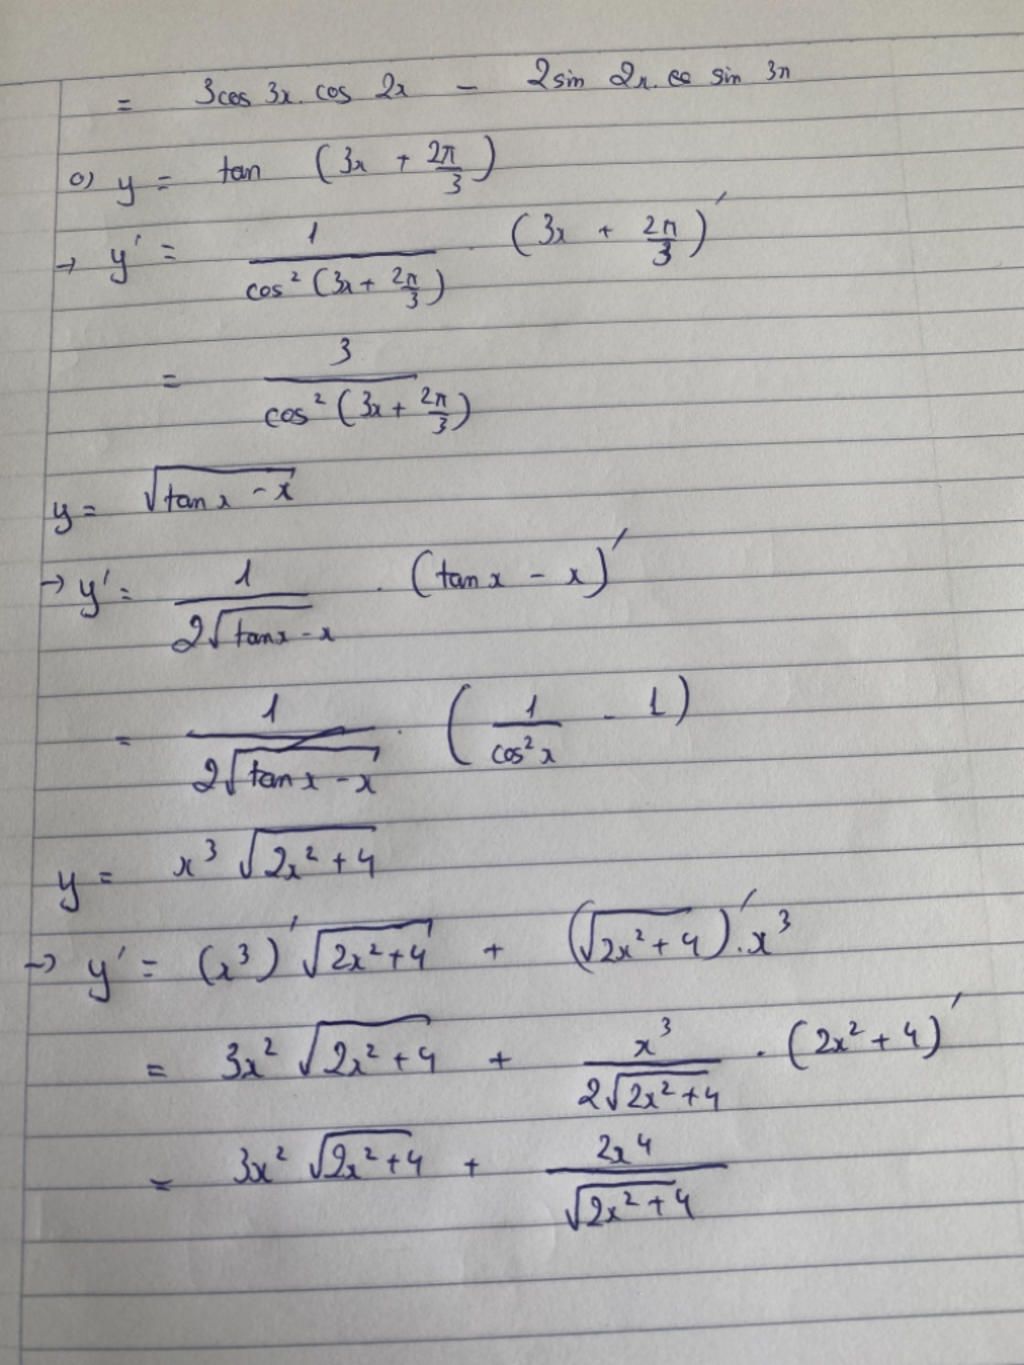 = 3cos 3x. cos 2x - 2sin 2x. sin 3x
o) y = tan (3x + 2π/3)
→ y' = 1/cos²(3x + 2π/3) . (3x + 2π/3)'
= 3/cos²(3x + 2π/3)
y = √(tan x - x)
→ y' = 1/2√(tanx - x) . (tan x - x)'
= 1/2√(tan x - x) . (1/cos²x - 1)
y = x³ √(2x² + 4)
→ y' = (x³)' √(2x² + 4) + (√(2x² + 4))'. x³
= 3x² √(2x² + 4) + x³/2√(2x² + 4) . (2x² + 4)'
= 3x² √(2x² + 4) + 2x⁴/√(2x² + 4)